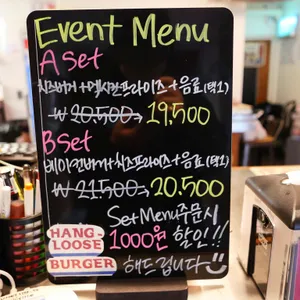 Event Menu
A Set
치즈버거+멕시칸프라이즈+음료(택1)
₩ 20,500→ 19,500
B Set
베이컨버거+치즈프라이즈+음료(택1)
₩ 21,500→ 20,500
Set Menu 주문시
1000원 할인!!
해드립니다
HANG-
LOOSE
BURGER